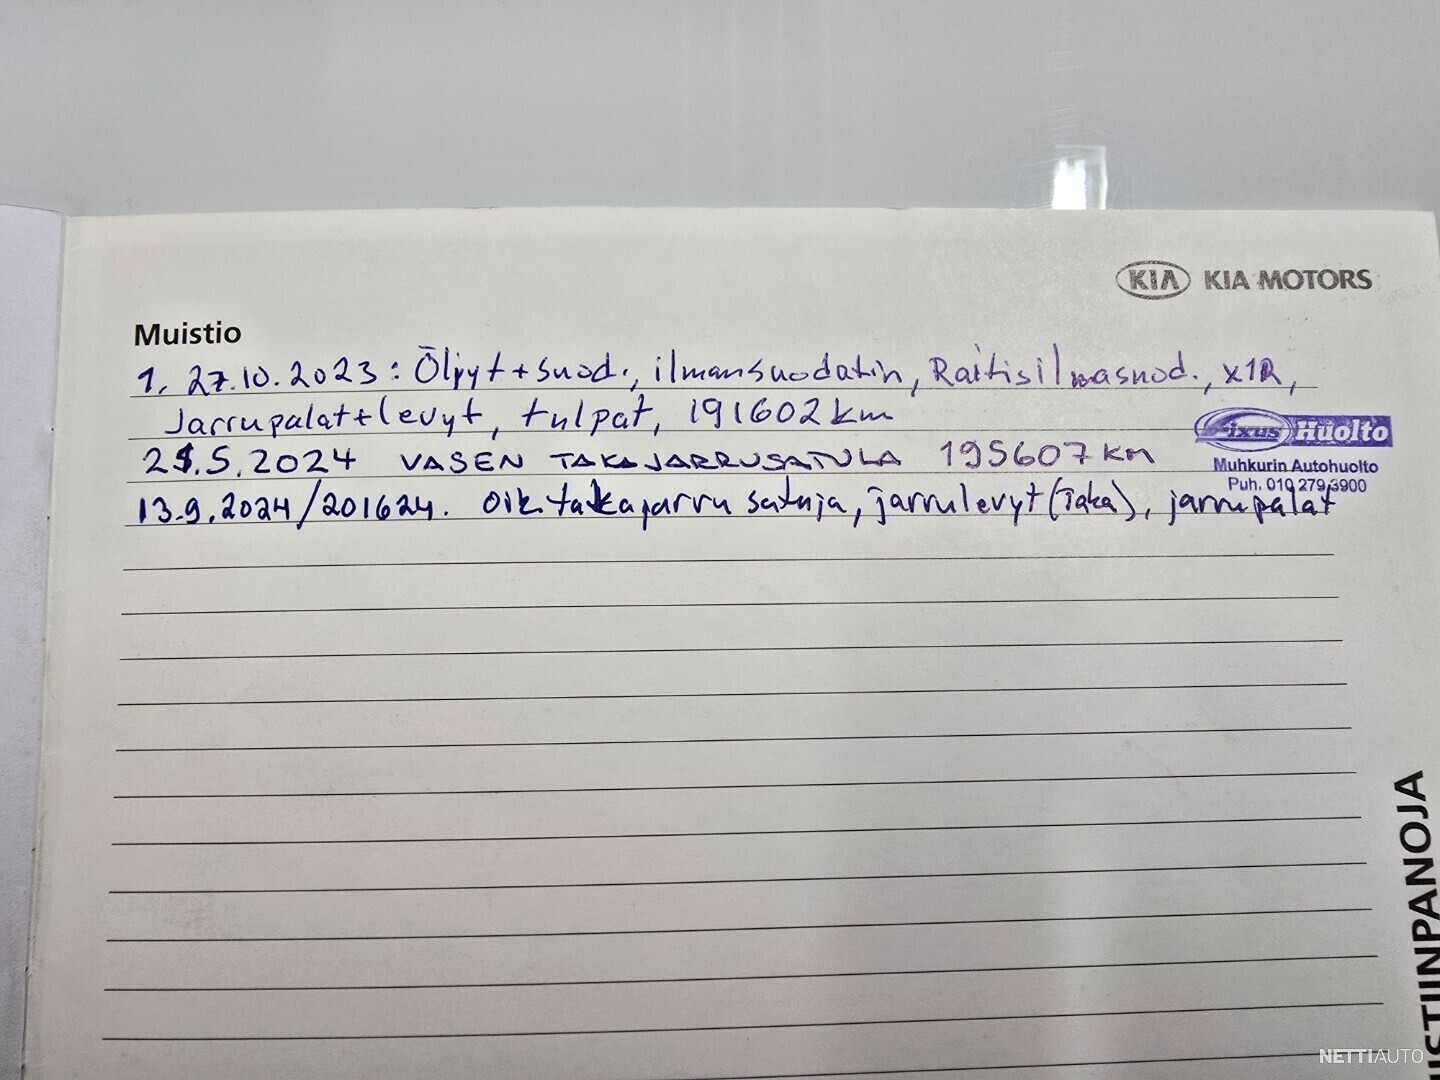 KIA KIA MOTORS
Muistio
1. 27.10.2023: Öljyt+suod., ilmansuodatin, Raitisilmasuod., x1R,
Jarrupalat+levyt, tulpat, 191602km
Fixus Huolto
Muhkurin Autohuolto
Puh. 010 279 3900
.5.2024 VASEN TAKAJARRUSATULA 195607 KM
13.9.2024/201624. Oik. takajarru satuja, jarrulevyt (taka), jarrupalat
STIINPANOJA
NETTIAUTO